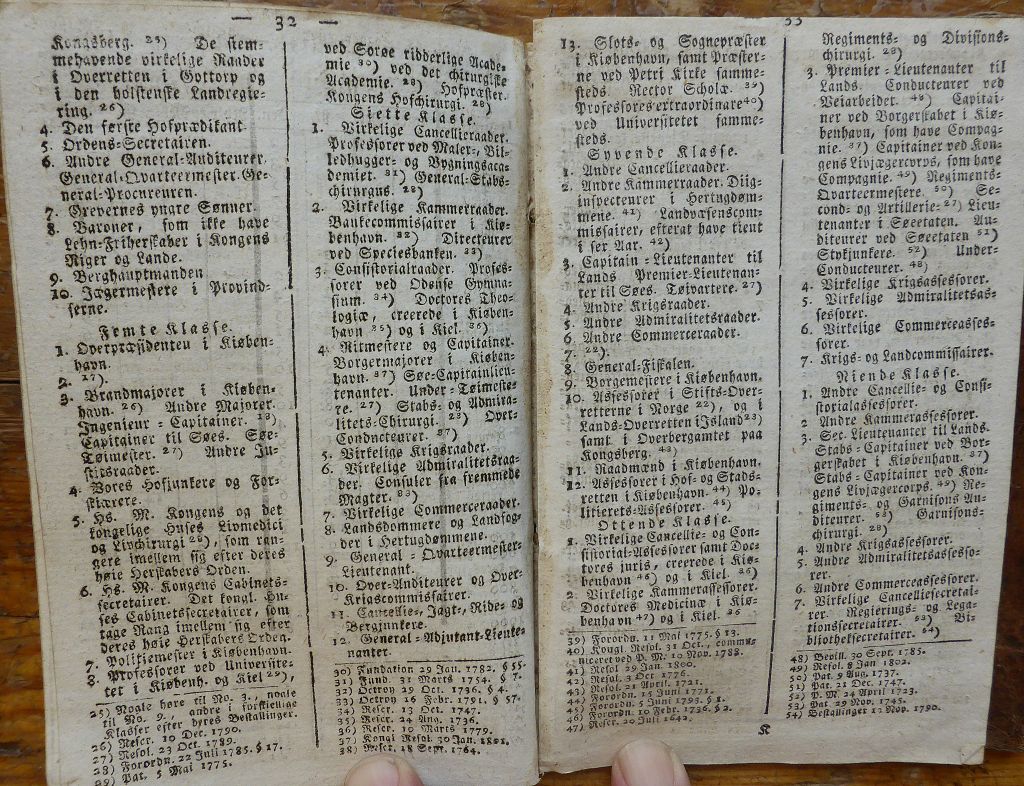 — 32 —
Kongsberg. 25) De stem-
mehavende virkelige Raader
i Overretten i Gottorp og
i den holstenske Landregie-
ring. 26)
4. Den første Hofprædikant.
5. Ordens-Secretairen.
6. Andre General-Auditeurer.
General-Qvarteermester. Ge-
neral-Procureuren.
7. Grevernes yngre Sønner.
8. Baroner, som ikke have
Lehn-Friherskaber i Kongens
Riger og Lande.
9. Berghauptmanden.
10. Jægermestere i Provind-
serne.
Femte Klasse.
1. Overpræsidenten i Kiøben-
havn.
2. 17).
3. Brandmajorer i Kiøben-
havn. 26) Andre Majorer.
Ingenieur-Capitainer. 13)
Capitainer til Søes. Søe-
Tøimester. 27) Andre Ju-
stitsraader.
4. Vores Hofjunkere og For-
skiærere.
5. Hs. M. Kongens og det
kongelige Huses Livmedici
og Livchirurgi 28), som ran-
gere imellem sig efter deres
høie Herskabers Orden.
6. Hs. M. Kongens Cabinets-
secretairer. Det kongl. Hu-
ses Cabinetssecretairer, som
tage Rang imellem sig efter
deres høie Herskabers Orden.
7. Politiemester i Kiøbenhavn.
8. Professorer ved Universite-
tet i Kiøbenh. og Kiel 29),
25) Nogle høre til No. 3., nogle
til No. 9., andre i forskiellige
Klasser efter deres Bestallinger.
26) Rescr. 10 Dec. 1790.
27) Resol. 23 Oct. 1789.
28) Forordn. 22 Juli 1785. § 17.
29) Pat. 5 Mai 1775.
ved Sorøe ridderlige Acade-
mie 30) ved det chirurgiske
Academie. 28) Hofpræster.
Kongens Hofchirurgi. 28)
Siette Klasse.
1. Virkelige Cancellieraader.
Professorer ved Maler-, Bil-
ledhugger- og Bygningsaca-
demiet. 31) General-Stabs-
chirurgus. 28)
2. Virkelige Kammerraader.
Bankecommissairer i Kiø-
benhavn. 32) Directeurer
ved Speciesbanken. 33)
3. Consistorialraader. Profes-
sorer ved Odense Gymna-
sium. 34) Doctores Theo-
logiæ, creerede i Kiøben-
havn 35) og i Kiel. 36)
4. Ritmestere og Capitainer.
Borgermajorer i Kiøben-
havn. 37) Søe-Capitainlieu-
tenanter. Under-Tøimeste-
re. 27) Stabs- og Admira-
litets-Chirurgi. 28) Over-
Conducteurer. 37)
5. Virkelige Krigsraader.
6. Virkelige Admiralitetsraa-
der, Consuler fra fremmede
Magter. 38)
7. Virkelige Commerceraader.
8. Landsdommere og Landfog-
der i Hertugdømmene.
9. General-Qvarteermester-
Lieutenant.
10. Over-Auditeurer og Over-
Krigscommissairer.
11. Cancellie-, Jagt-, Ride- og
Bergjunkere.
12. General-Adjutant-Lieute-
nanter.
30) Fundation 29 Jan. 1782. § 55.
31) Fund. 31 Marts 1754. § 7.
32) Octroy 29 Oct. 1736. § 4.
33) Octroy 16 Febr. 1791. § 57.
34) Rescr. 13 Oct. 1747.
35) Rescr. 24 Aug. 1736.
36) Rescr. 10 Marts 1779.
37) Kongl Resol. 30 Jan. 1801.
38) Rescr. 18 Sept. 1764.
33
13. Slots- og Sognepræster
i Kiøbenhavn, samt Præster-
ne ved Petri Kirke samme-
steds. Rector Scholæ. 39)
Professores extraordinare 40)
ved Universitetet samme-
steds.
Syvende Klasse.
1. Andre Cancellieraader.
2. Andre Kammerraader. Diig-
inspecteurer i Hertugdøm-
mene. 41) Landvæsenscom-
missairer, efterat have tient
i sex Aar. 42)
3. Capitain-Lieutenanter til
Lands Premier-Lieutenan-
ter til Søes. Tøivartere. 27)
4. Andre Krigsraader.
5. Andre Admiralitetsraader.
6. Andre Commerceraader.
7. 22).
8. General-Fiskalen.
9. Borgemestere i Kiøbenhavn.
10. Assessorer i Stifts-Over-
retterne i Norge 22), og i
Lands-Overretten i Island 23)
samt i Overbergamtet paa
Kongsberg. 43)
11. Raadmænd i Kiøbenhavn.
12. Assessorer i Hof- og Stads-
retten i Kiøbenhavn. 44) Po-
litierets-Assessorer. 45)
Ottende Klasse.
1. Virkelige Cancellie- og Con-
sistorial-Assessorer samt Doc-
tores juris, creerede i Kiø-
benhavn 46) og i Kiel. 36)
2. Virkelige Kammerassessorer.
Doctores Medicinæ i Kiø-
benhavn 47) og i Kiel. 36
39) Forordn. 11 Mai 1775. § 13.
40) Kongl. Resol. 31 Oct., commu-
niceret ved P. M. 10 Nov. 1788.
41) Resol. 29 Jan. 1800.
42) Resol. 3 Oct 1776.
43) Resol. 21 April. 1721.
44) Forordn. 15 Juni 1771.
45) Forordn. 5 Juni 1793. § 8.
46) Forordn. 10 Febr. 1736. § 2.
47) Rescr. 20 Juli 1642.
K
Regiments- og Divisions-
chirurgi. 28)
3. Premier-Lieutenanter til
Lands. Conducteurer ved
Veiarbeidet. 48) Capitai-
ner ved Borgerskabet i Kiø-
benhavn, som have Compag-
nie. 37) Capitainer ved Kon-
gens Livjægercorps, som have
Compagnie. 49) Regiments-
Qvarteermestere. 50) Se-
cond- og Artillerie- 27) Lieu-
tenanter i Søeetaten. Au-
diteurer ved Søeetaten 51)
Stykjunkere. 52) Under-
Conducteurer. 48)
4. Virkelige Krigsassessorer.
5. Virkelige Admiralitetsas-
sessorer.
6. Virkelige Commerceasses-
sorer.
7. Krigs- og Landcommissairer.
Niende Klasse.
1. Andre Cancellie- og Consi-
storialassessorer.
2 Andre Kammerassessorer.
3. Sec. Lieutenanter til Lands.
Stabs-Capitainer ved Bor-
gerskabet i Kiøbenhavn. 37)
Stabs-Capitainer ved Kon-
gens Livjægercorps. 49) Re-
giments- og Garnisons Au-
diteurer. 53) Garnisons-
chirurgi. 28)
4. Andre Krigsassessorer.
5. Andre Admiralitetsassesso-
rer.
6. Andre Commerceassessorer.
7. Virkelige Cancelliesecretai-
rer. Regierings- og Lega-
tionssecretairer. 53) Bi-
bliotheksecretairer. 54)
48) Bevill. 30 Sept. 1785.
49) Resol. 8 Jan 1802.
50) Pat. 9 Aug. 1737.
51) Pat. 21 Dec. 1747.
52) P. M. 24 April 1723.
53) Pat. 29 Nov. 1745.
54) Bestallinger 12 Nov. 1790.